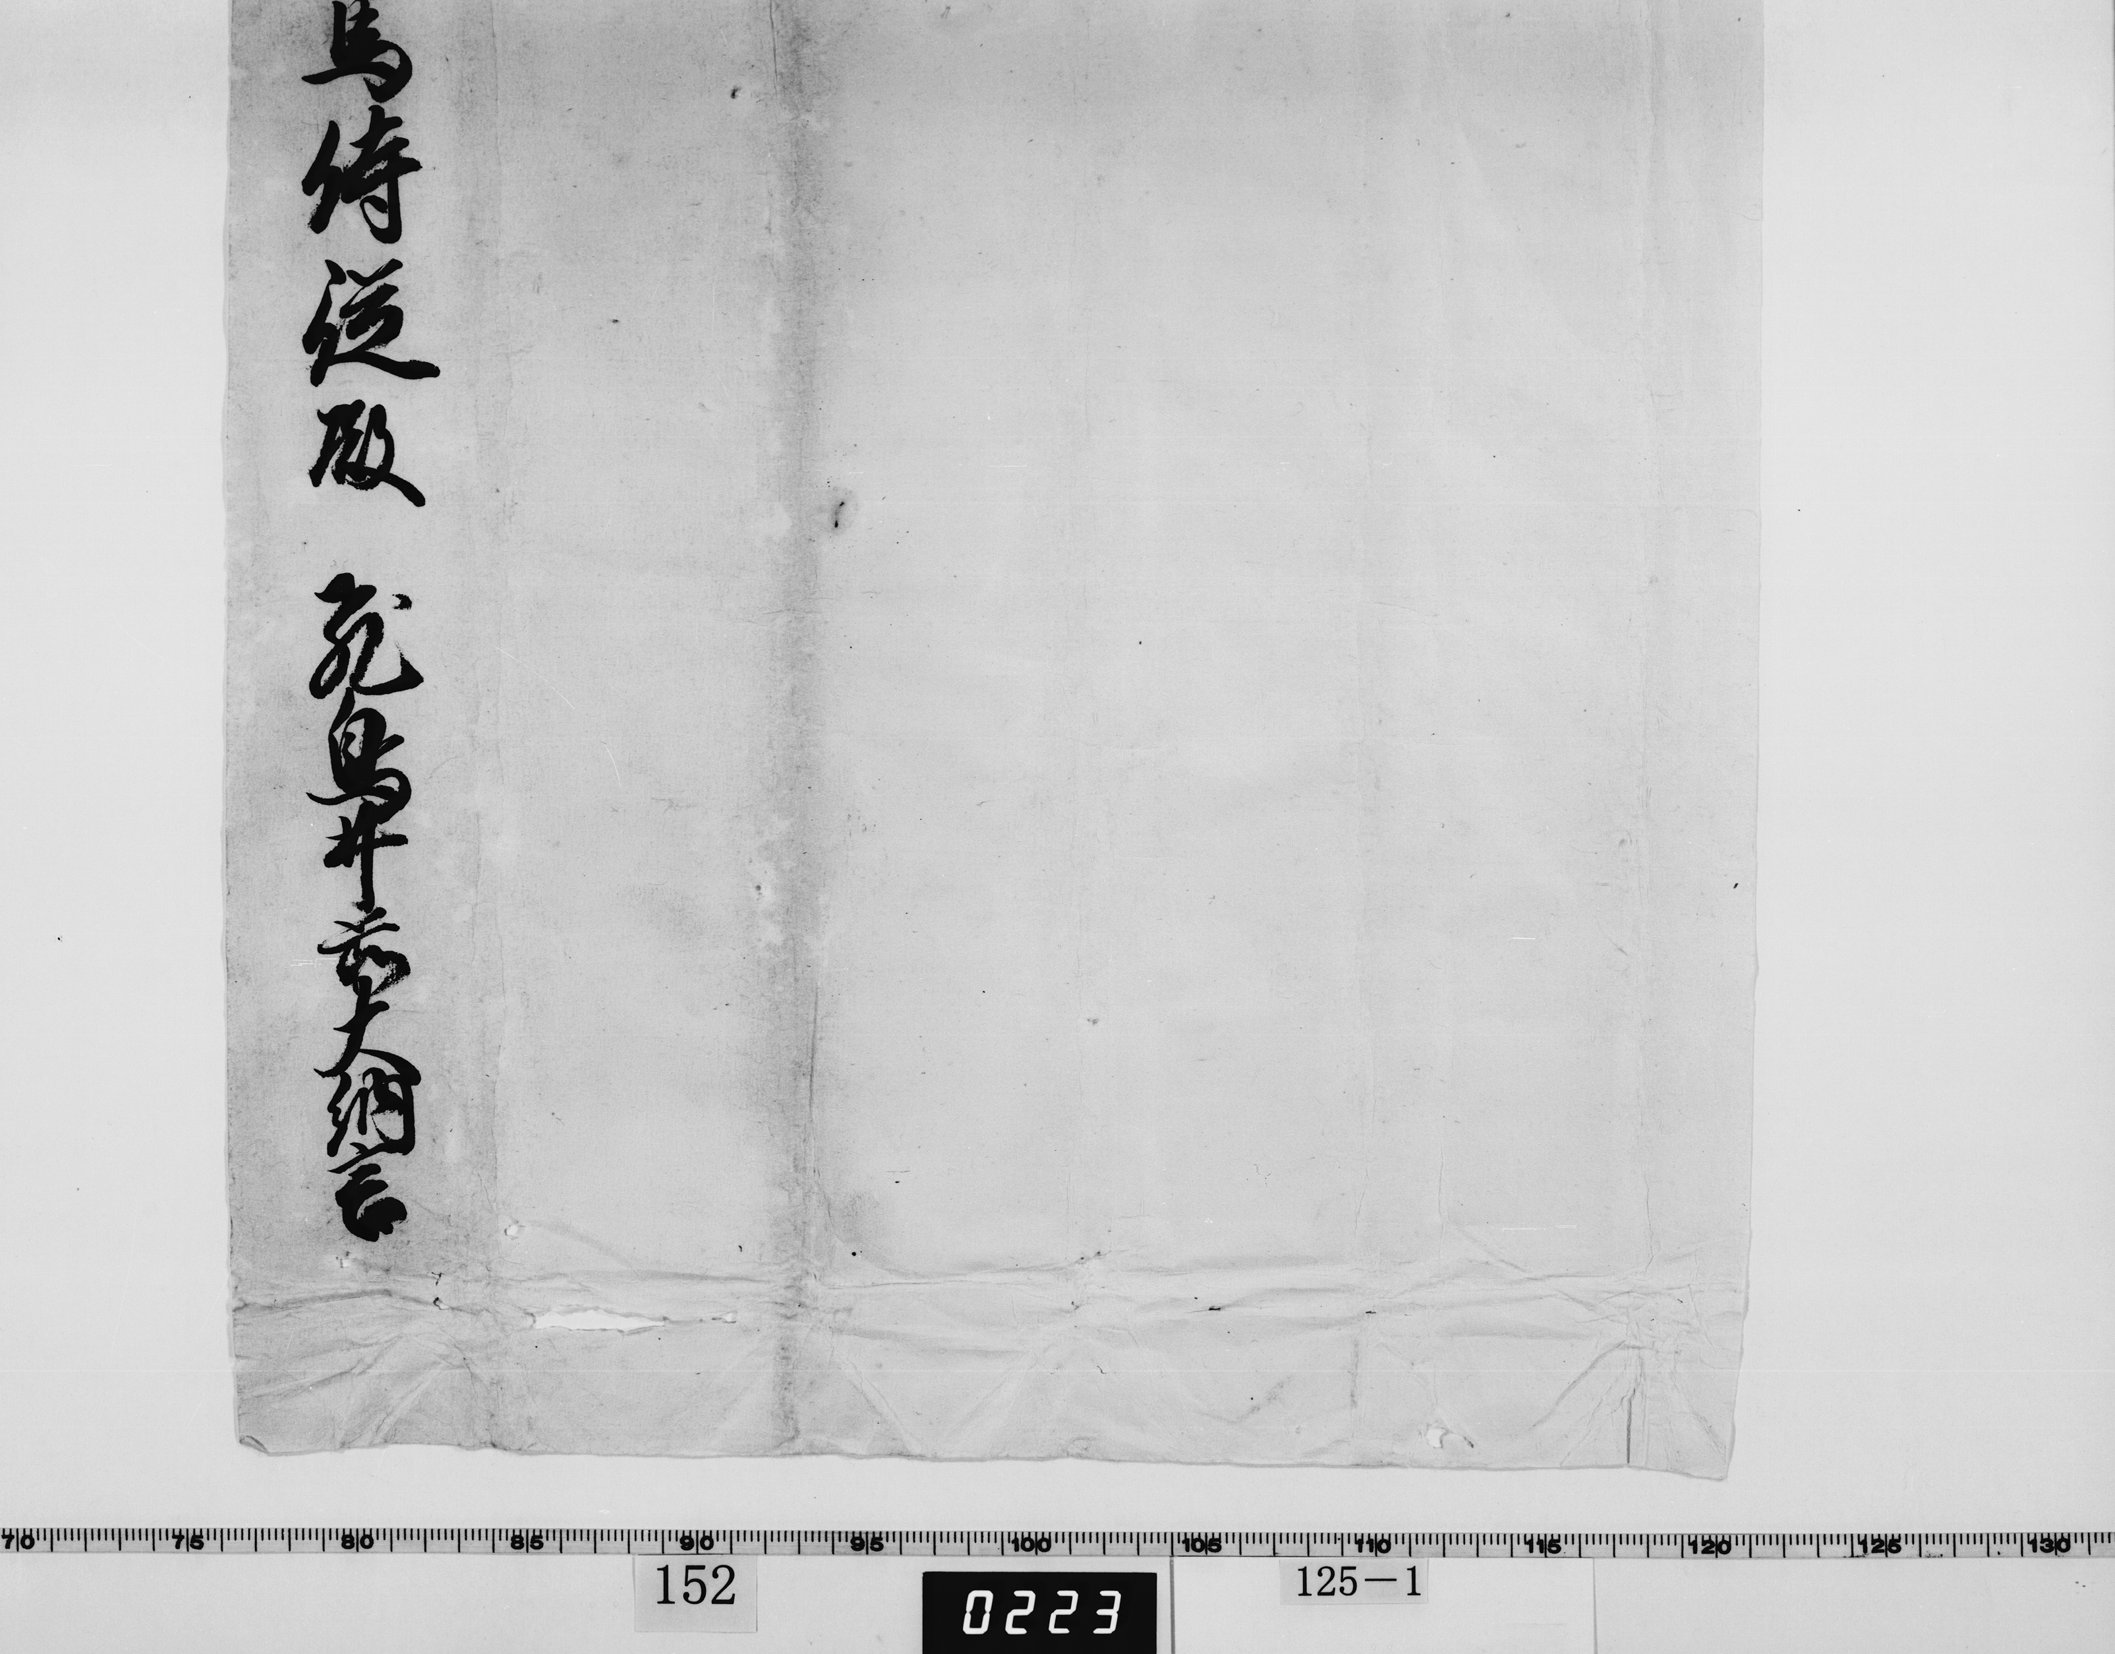 馬侍従殿 飛鳥井前大納言
70 75 80 85 90 95 100 105 110 115 120 125 130
152 0223 125-1